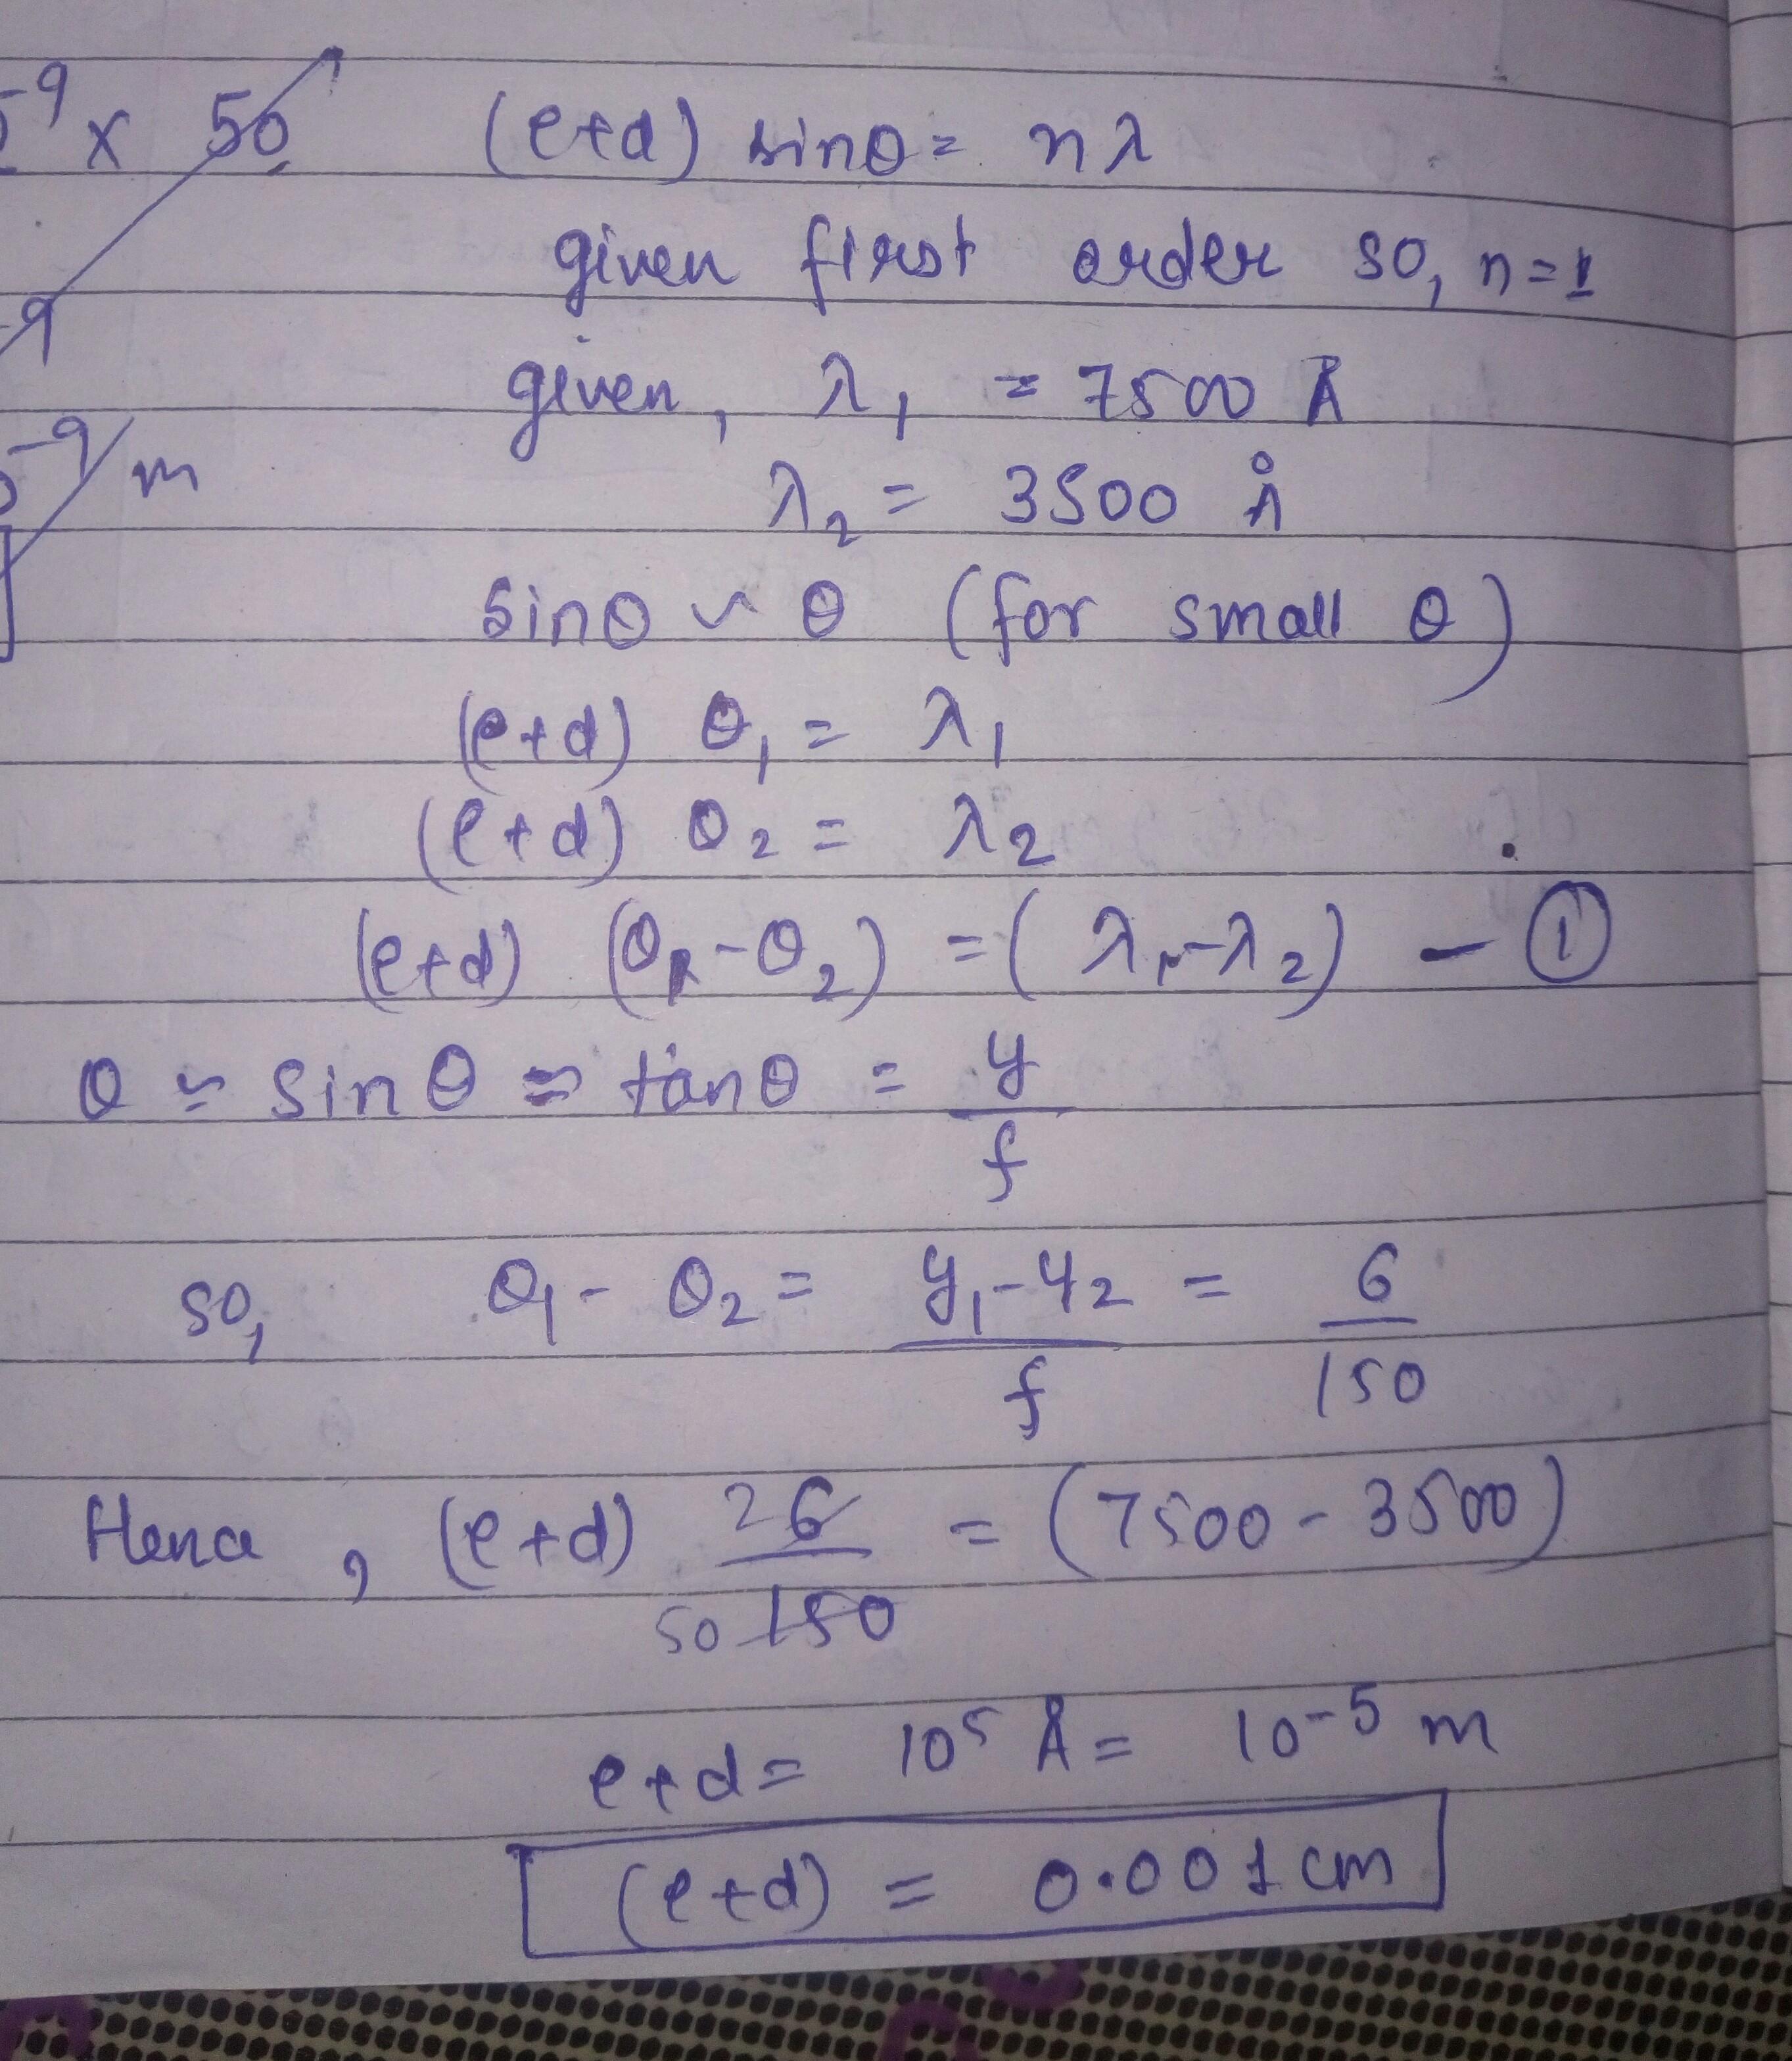 -9 x 50 (e+d) sinθ = nλ
given first order so, n=1
-9
given, λ1 = 7500 Å
-9 m
λ2 = 3500 Å
sinθ ~ θ (for small θ)
(e+d) θ1 = λ1
(e+d) θ2 = λ2
(e+d) (θ1-θ2) = (λ1-λ2) - ①
θ ≈ sinθ ≈ tanθ = y/f
so, θ1 - θ2 = y1-y2/f = 6/150
Hence, (e+d) 2 6/50 150 = (7500 - 3500)
e+d = 10^5 Å = 10^-5 m
(e+d) = 0.001 cm